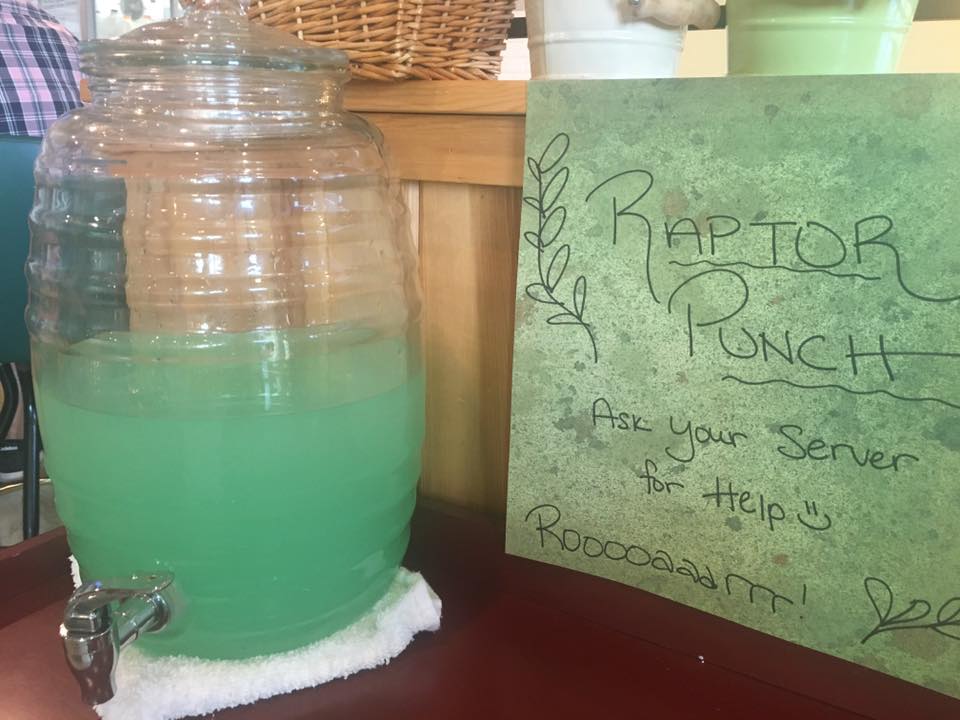 RAPTOR
PUNCH
Ask your Server
for Help
Rooooaaadrrr!